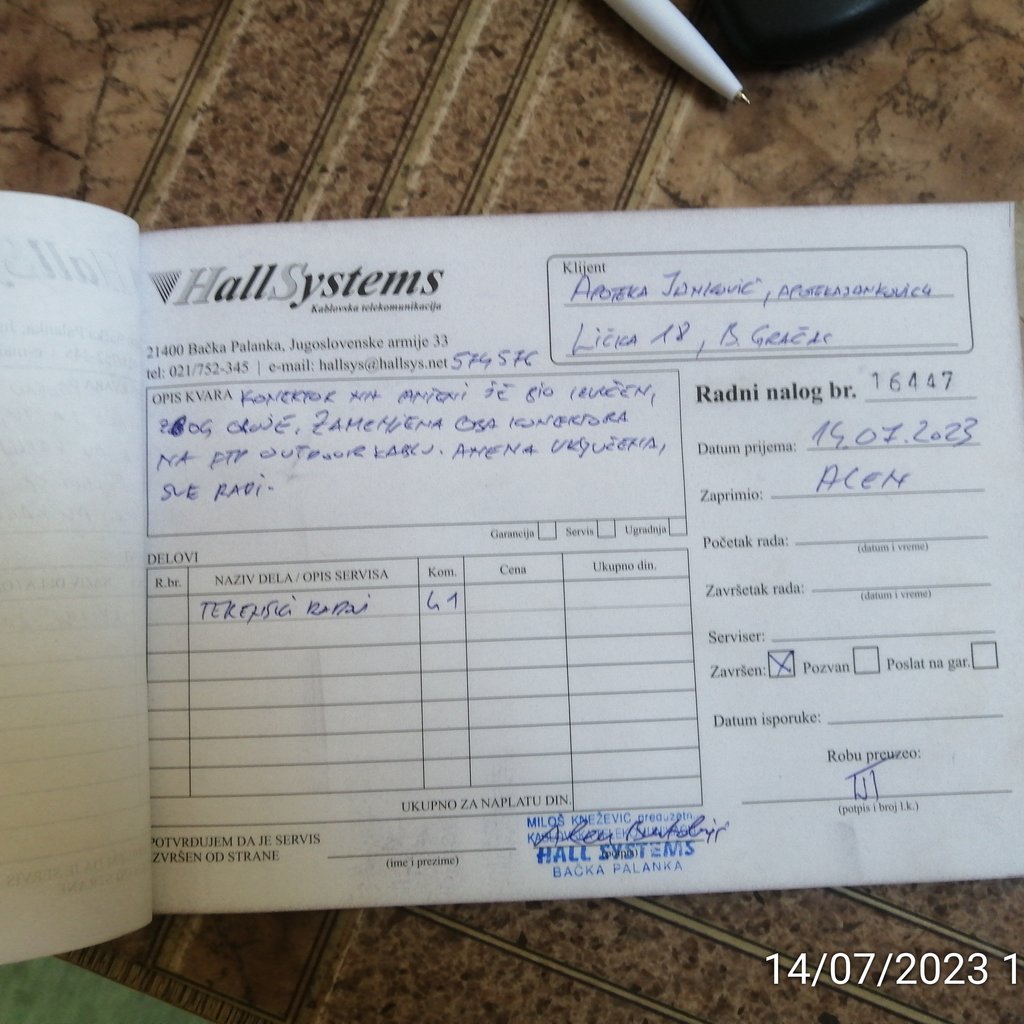 HallSystems
Kablovska telekomunikacija
21400 Bačka Palanka, Jugoslovenske armije 33
tel: 021/752-345 | e-mail: hallsys@hallsys.net 574576
Klijent
APOTEKA JANKOVIĆ, APOTEKAJANKOVICU
LIČKA 18, B. GRAČAC
OPIS KVARA KONEKTOR NA ANTENI JE BIO IZVUČEN,
ZBOG OLUJE, ZAMENJENA OBA KONEKTORA
NA FTP OUTDOOR KABLU. ANENA UKLJUČENA,
SVE RADI.
Garancija Servis Ugradnja
Radni nalog br. 16447
Datum prijema: 14.07.2023
Zaprimio: ALEN
Početak rada:
(datum i vreme)
Završetak rada:
(datum i vreme)
Serviser:
Završen: X Pozvan Poslat na gar.
Datum isporuke:
Robu preuzeo:
(potpis i broj l.k.)
DELOVI
R.br. NAZIV DELA / OPIS SERVISA Kom. Cena Ukupno din.
TERENSKI RADNI 1
UKUPNO ZA NAPLATU DIN.
POTVRDUJEM DA JE SERVIS
IZVRŠEN OD STRANE
(ime i prezime)
MILOŠ KNEŽEVIĆ preduzetn
HALL SYSTEMS
BAČKA PALANKA
14/07/2023 1